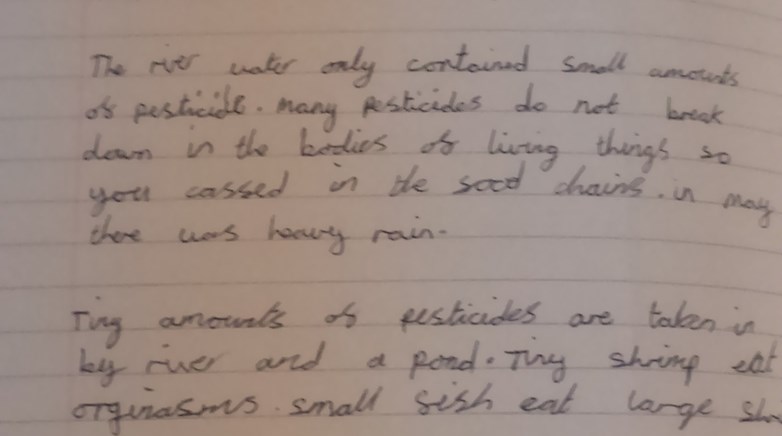 The river water only contained small amounts
of pesticide. Many pesticides do not break
down in the bodies of living things so
you cassed in the food chains. in may
there was heavy rain.
Tiny amounts of pesticides are taken in
by river and a pond. Tiny shrimp eat
orginasms. small fish eat large